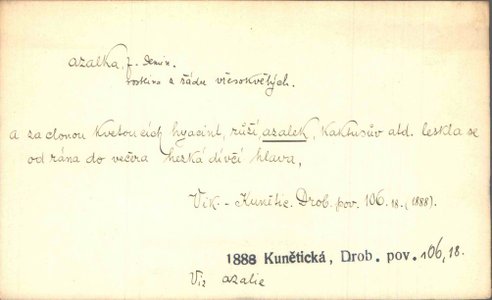 azalka, f. Demin.
rostlina z řádu vřesokvětých.
a za clonou kvetoucích hyacint, růží, azalek, kaktusův atd. leskla se
od rána do večera hezká dívčí hlava,
Vik.-Kunětic. Drob. pov. 106.18. (1888).
1888 Kunětická, Drob. pov. 106,18.
Viz azalie